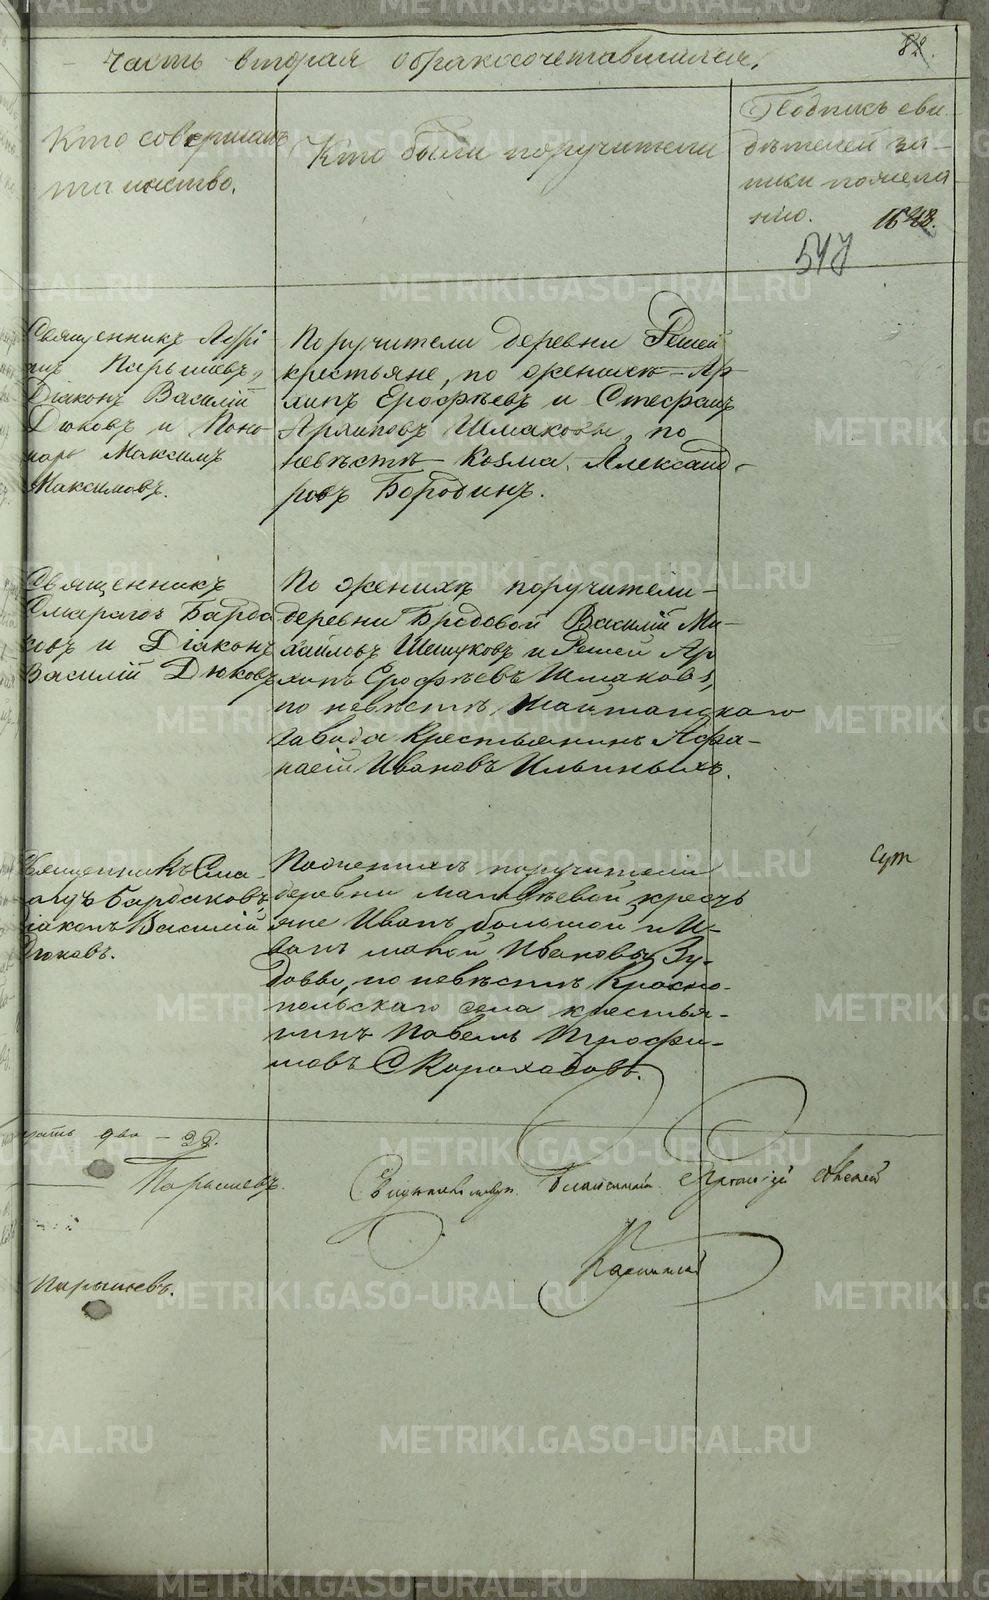 Часть вторая обракосочетавшихся.
82.
Кто совершалъ
таинство.
Кто были поручители
Подпись сви-
дѣтелей за-
писи по жела-
нію.
517
Священникъ
Парышевъ,
Діаконъ Василій
Дюковъ и Поно-
марь Максимъ
Максимовъ.
Поручители деревни Решей
крестьяне, по женихѣ - Ар-
хипъ Ерофѣевъ и Стефанъ
Архиповъ Шмаковы, по
невѣстѣ - Козма Александ-
ровъ Бородинъ.
Священникъ
Смарагдъ Барда
ковъ и Діаконъ
Василій Дюковъ
По женихѣ поручители -
деревни Бродовой Василій Ми-
хайловъ Шешуковъ и Решей Ар
хипъ Ерофѣевъ Шмаковъ,
по невѣстѣ, Шайтанскаго
завода крестьянинъ Афа-
насій Ивановъ Ильиныхъ.
Священникъ Сма-
рагдъ Бардаковъ,
Діаконъ Василій
Дюковъ.
По женихѣ поручители
деревни Матвѣевой кресть
яне Иванъ большой и И-
ванъ малой Ивановы Зу-
довы, по невѣстѣ Красно-
польскаго села крестья-
нинъ Павелъ Трофи-
мовъ Скороходовъ.
два - 22.
Парышевъ.
Парышевъ.